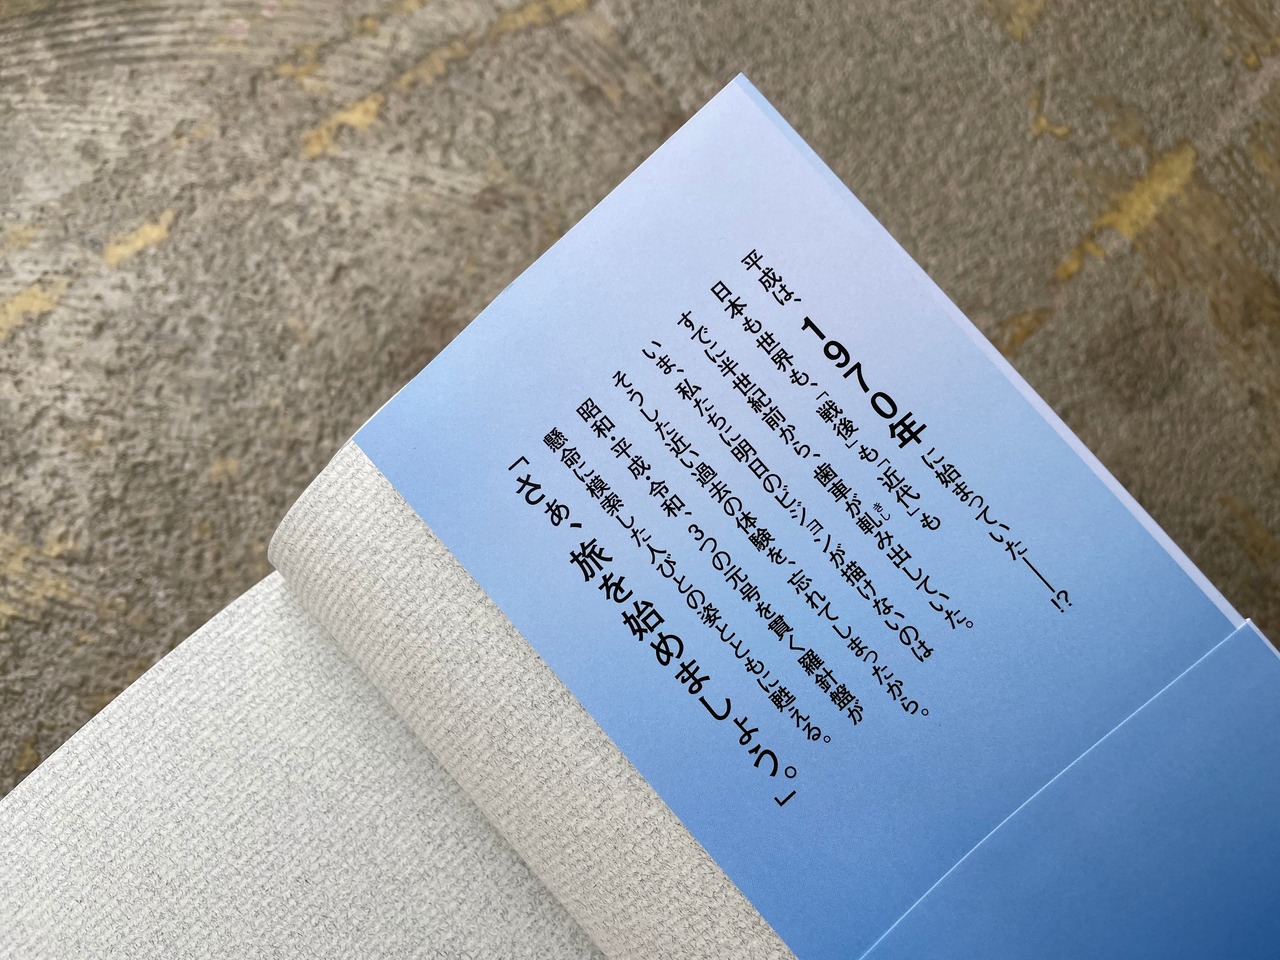 平成は、1970年に始まっていた──!?
日本も世界も、「戦後」も「近代」も
すでに半世紀前から、歯車が軋み出していた。
きし
いま、私たちに明日のビジョンが描けないのは
そうした近い過去の体験を、忘れてしまったから。
昭和・平成・令和、3つの元号を貫く羅針盤が
懸命に模索した人びとの姿とともに甦える。
「さあ、旅を始めましょう。」